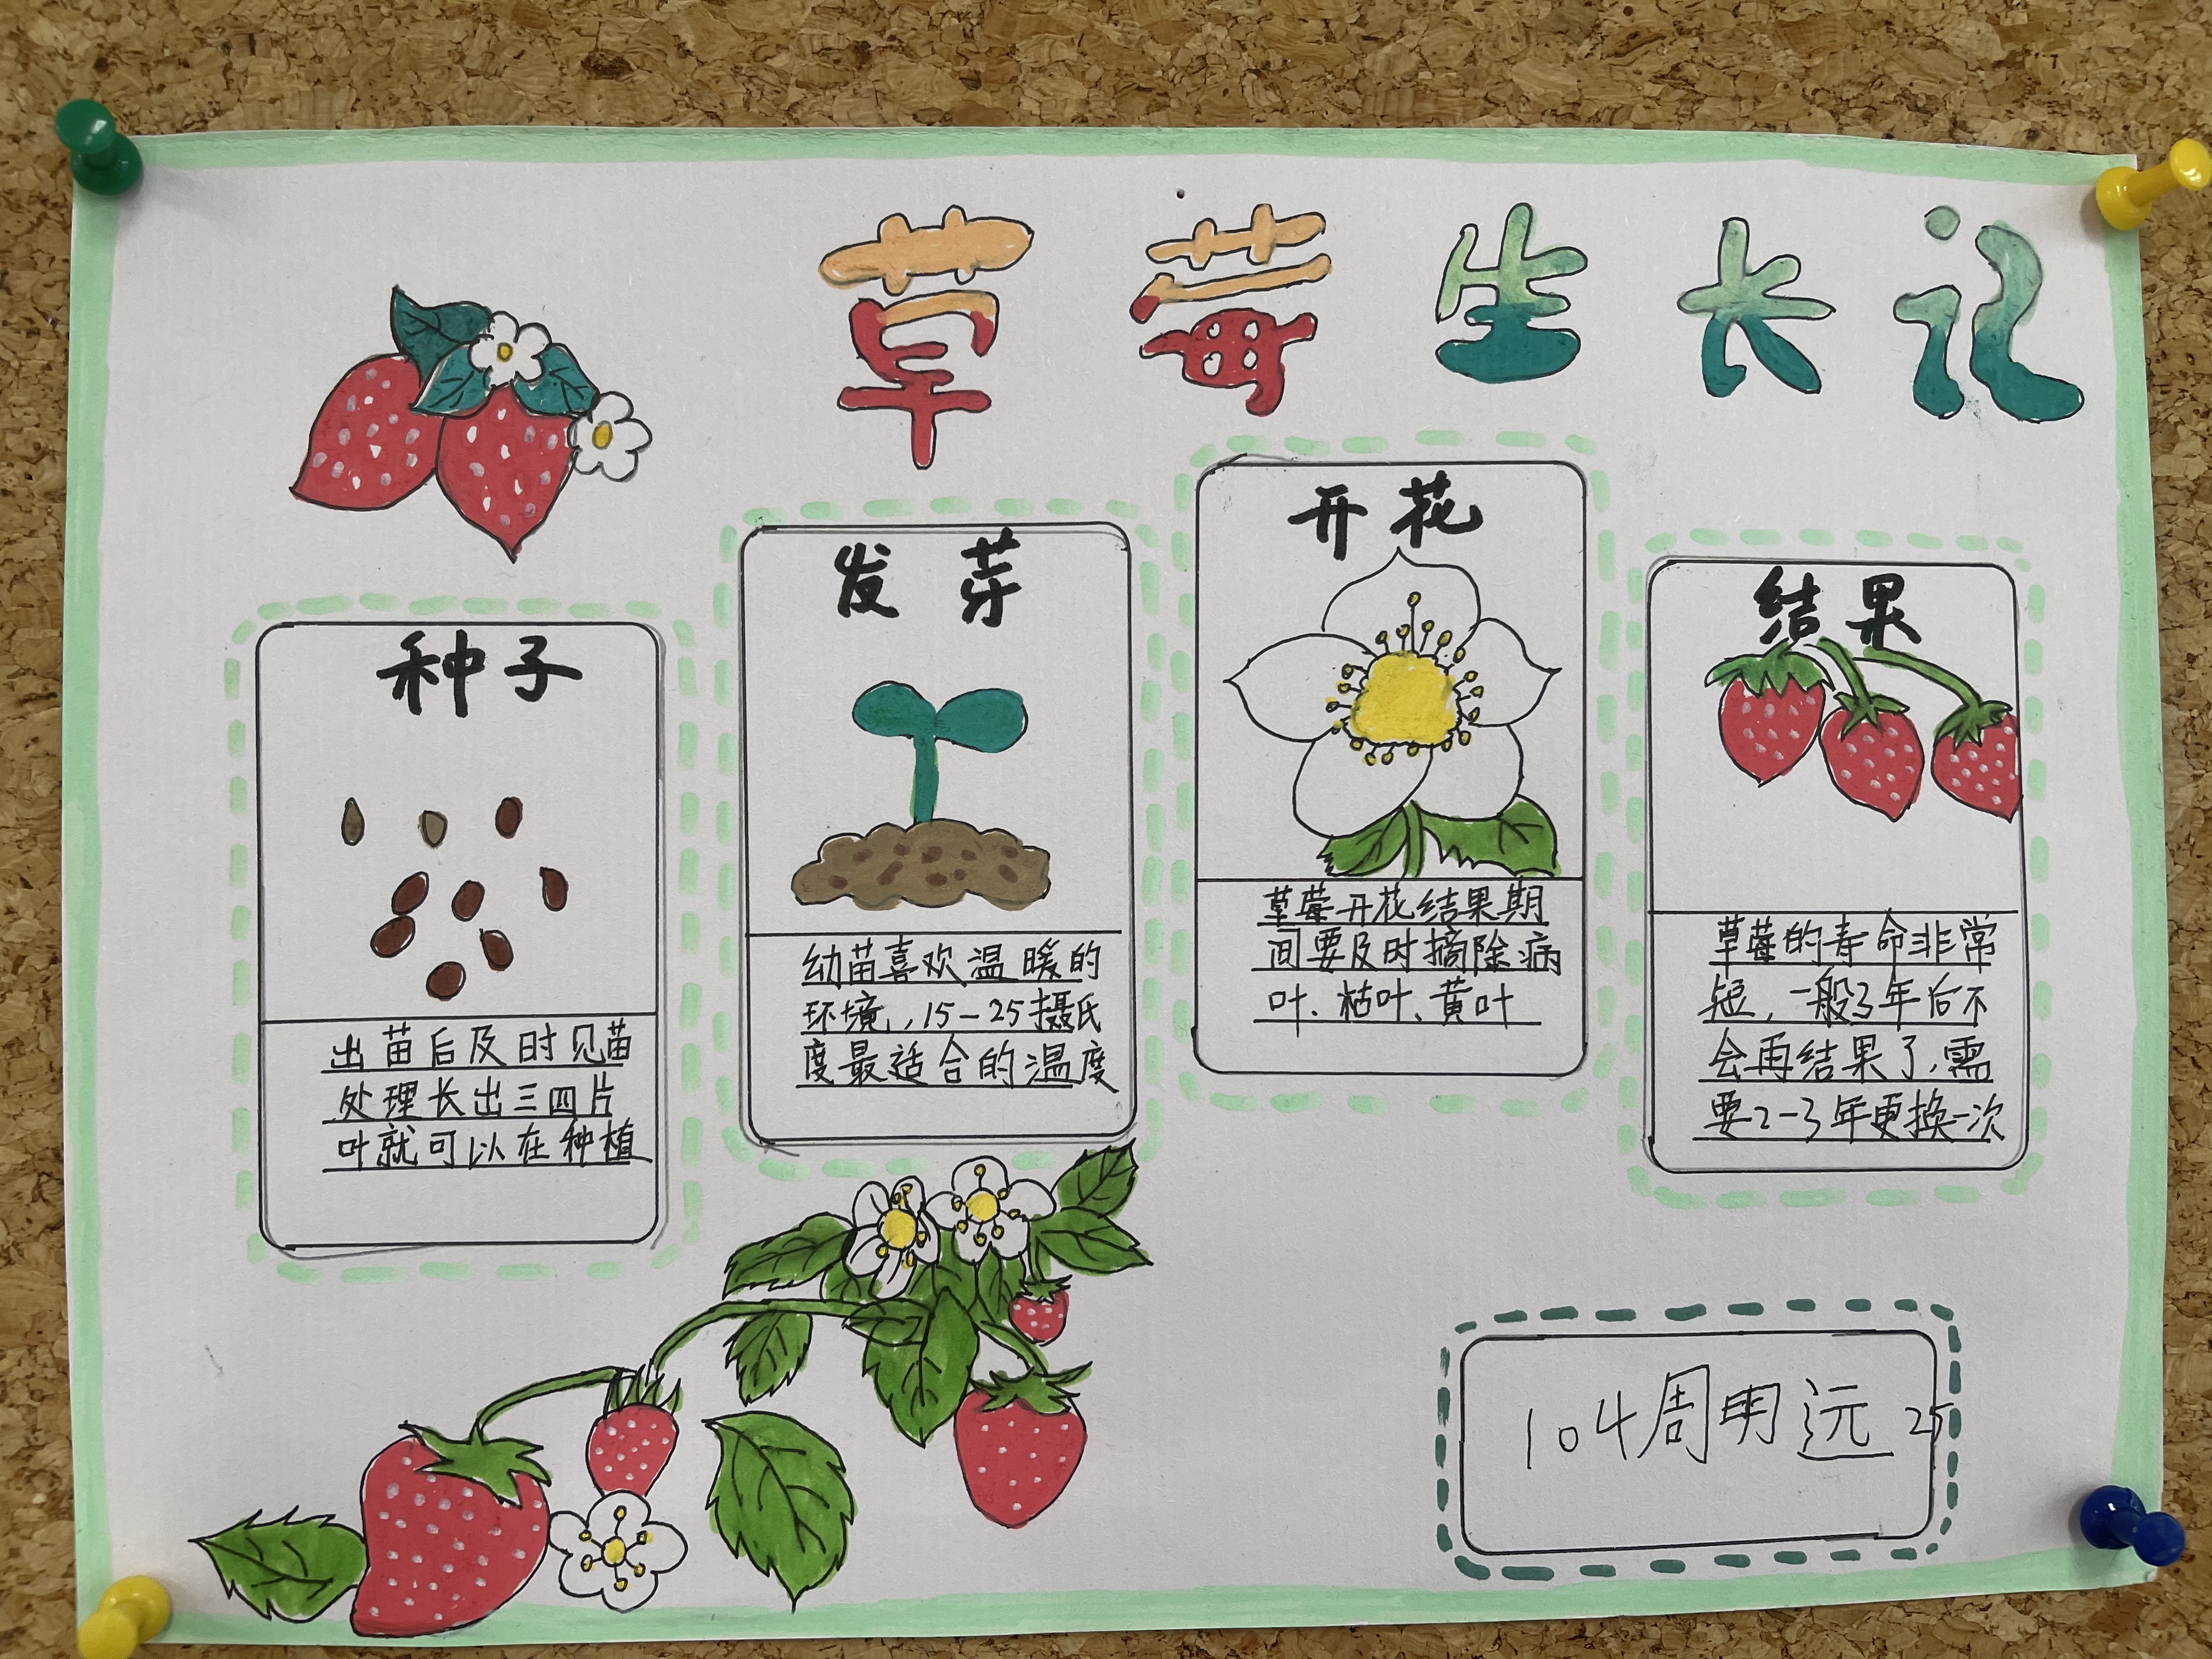 草莓生长记
种子
出苗后及时见苗
处理长出三四片
叶就可以在种植
发芽
幼苗喜欢温暖的
环境,15-25摄氏
度最适合的温度
开花
草莓开花结果期
间要及时摘除病
叶、枯叶、黄叶
结果
草莓的寿命非常
短,一般3年后不
会再结果了,需
要2-3年更换一次
104周明远 25